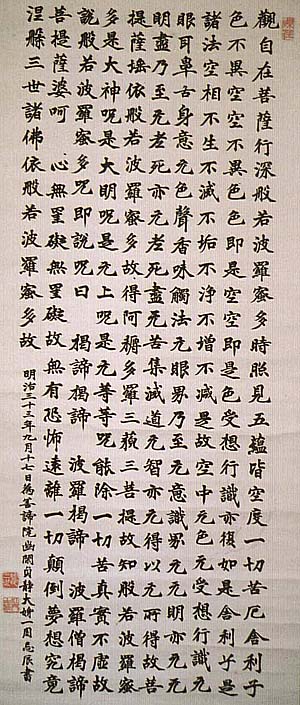 觀自在菩薩行深般若波羅蜜多時照見五蘊皆空度一切苦厄舍利子
色不異空空不異色色即是空空即是色受想行識亦復如是舍利子是
諸法空相不生不滅不垢不淨不增不減是故空中无色无受想行識无
眼耳鼻舌身意无色聲香味觸法无眼界乃至无意識界无无明亦无无
明盡乃至无老死亦无老死盡无苦集滅道无智亦无得以无所得故菩
提薩埵依般若波羅蜜多故得阿耨多羅三藐三菩提故知般若波羅蜜
多是大神呪是大明呪是无上呪是无等等呪能除一切苦真實不虛故
說般若波羅蜜多呪即說呪曰 揭諦揭諦 波羅揭諦 波羅僧揭諦
菩提薩婆呵 心無罣礙無罣礙故無有恐怖遠離一切顛倒夢想究竟
涅槃三世諸佛依般若波羅蜜多故
明治三十三年九月十七日為諦院幽貞靜一周忌辰書